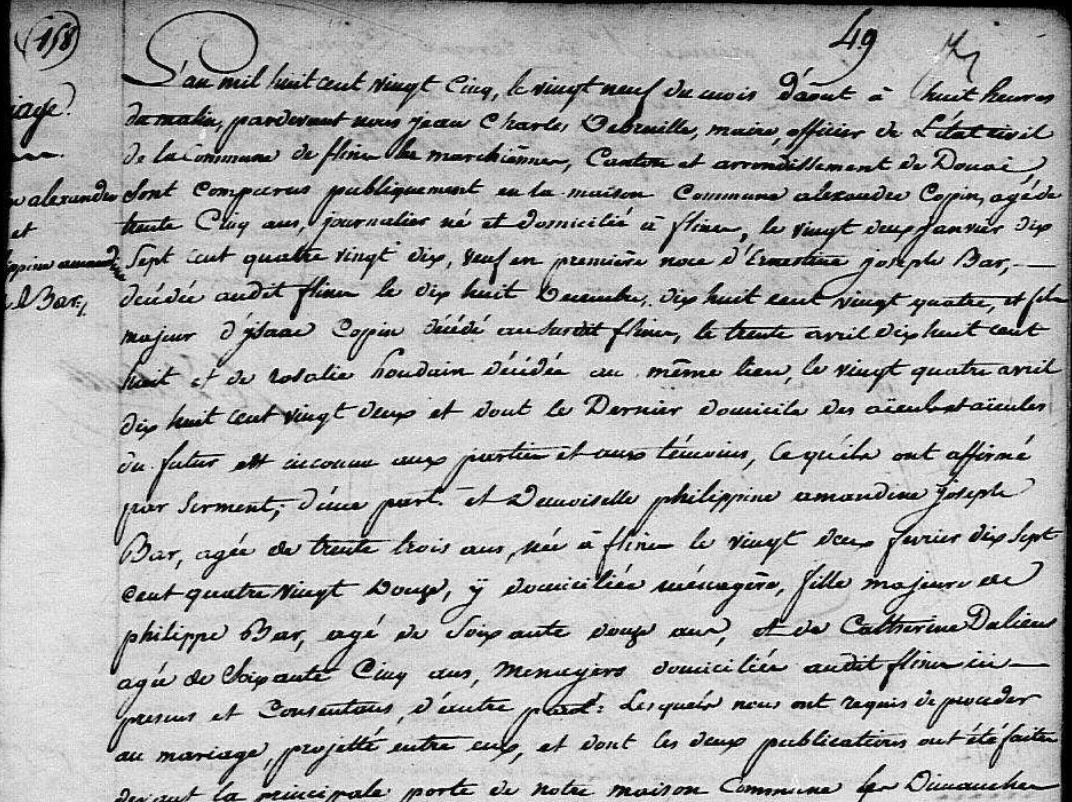 (158)
49
iage.
alexandre
et
ppine amand
Bar,
L'an mil huit cent vingt Cinq, le vingt neuf du mois d'août à huit heures
du matin, pardevant nous jean Charles Debruille, maire, officier de L'état civil
de la Commune de flines les marchiennes, Canton et arrondissement de Douai,
Sont comparus publiquement en la maison Commune alexandre Copin, agé de
trente Cinq ans, journalier né et domicilié à flines, le vingt deux janvier dix
Sept cent quatre vingt dix, veuf en première noce d'Ernestine joseph Bar,
décédée audit flines le dix huit Decembre, dix huit cent vingt quatre, et fils
majeur d'ysaac Copin décédé au susdit flines, le trente avril dix huit cent
huit et de rosalie houdain décédée au même lieu, le vingt quatre avril
dix huit cent vingt deux et dont le Dernier domicile des aïeuls et aïeules
du futur est inconnu aux parties et aux témoins, Ce qu'ils ont affirmé
par Serment, d'une part. et Demoiselle philippine amandine joseph
Bar, agée de trente trois ans, née à flines le vingt deux fevrier dix Sept
cent quatre vingt Douze, ÿ domiciliée ménagère, fille majeure de
philippe Bar, agé de Soixante douze ans, et de Catherine Daliens
agée de Soixante Cinq ans, Menagers domiciliés audit flines ici
presens et Consentans, d'autre part: Lesquels nous ont requis de proceder
au mariage, projetté entre eux, et dont les deux publications ont été faites
devant la principale porte de notre maison Commune les Dimanches